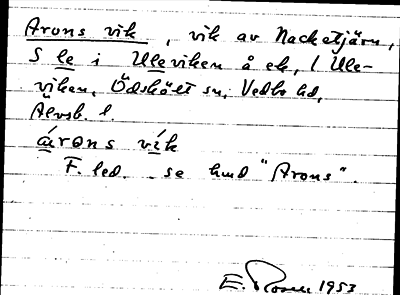 Arons vik, vik av Nacketjärn,
S le i Uleviken å ek, l Ule-
viken, Ödskölt sn, Vedbo hd,
Älvsb. l.
árons vík
F. led. se hmd "Arons".
E. Rosell 1953